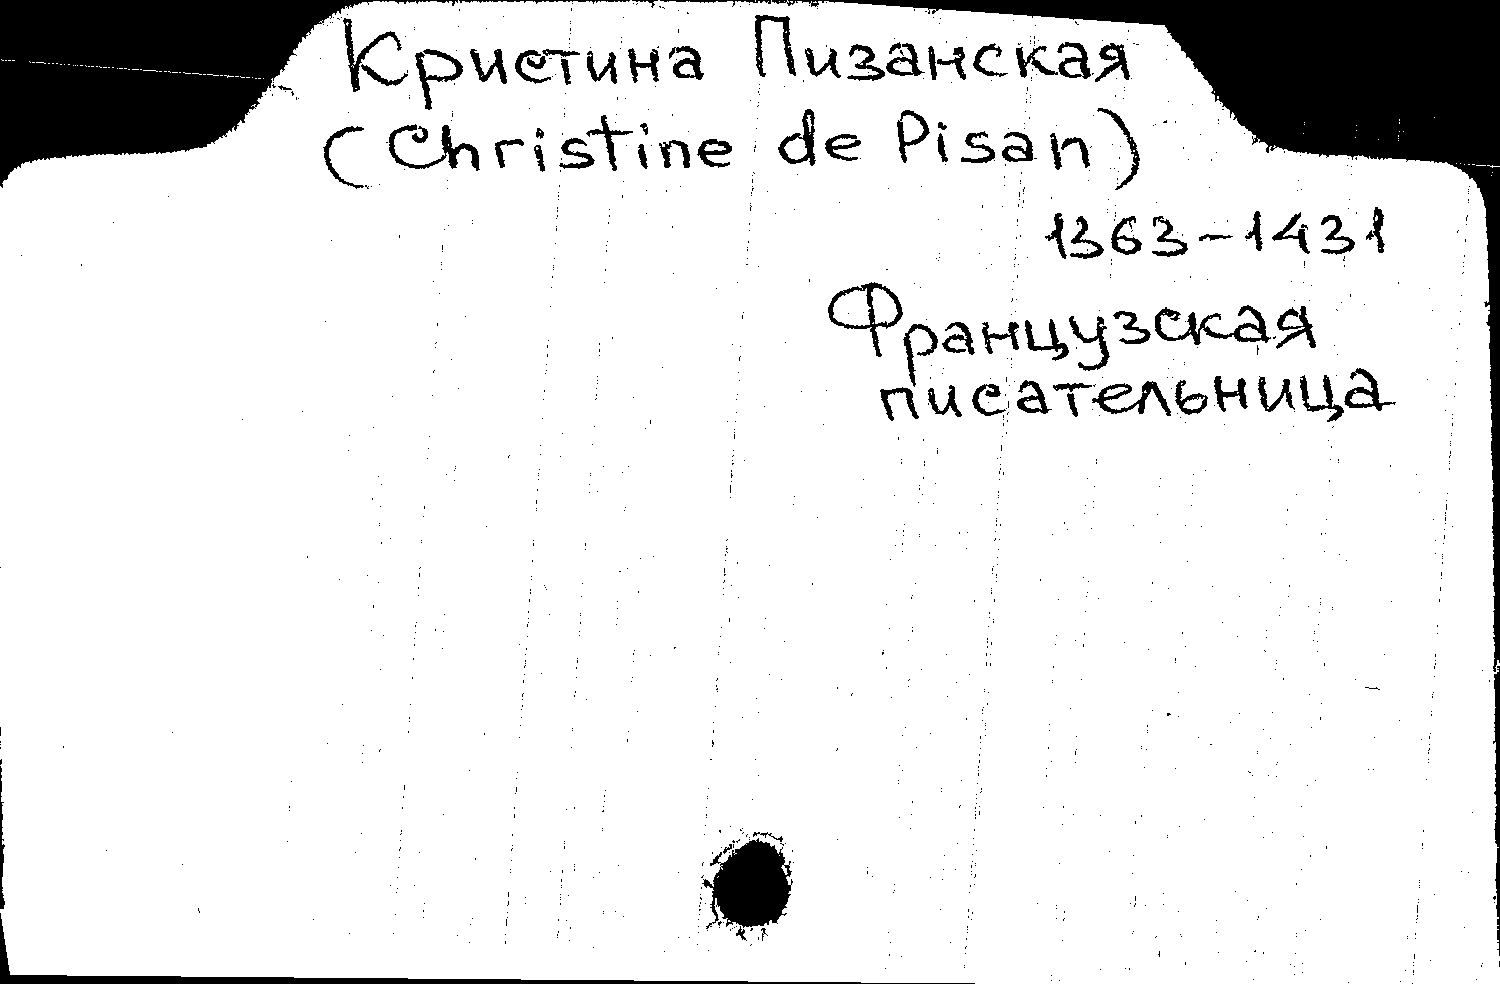 Кристина Пизанская
(Christine de Pisan)
1363-1431
Французская
писательница